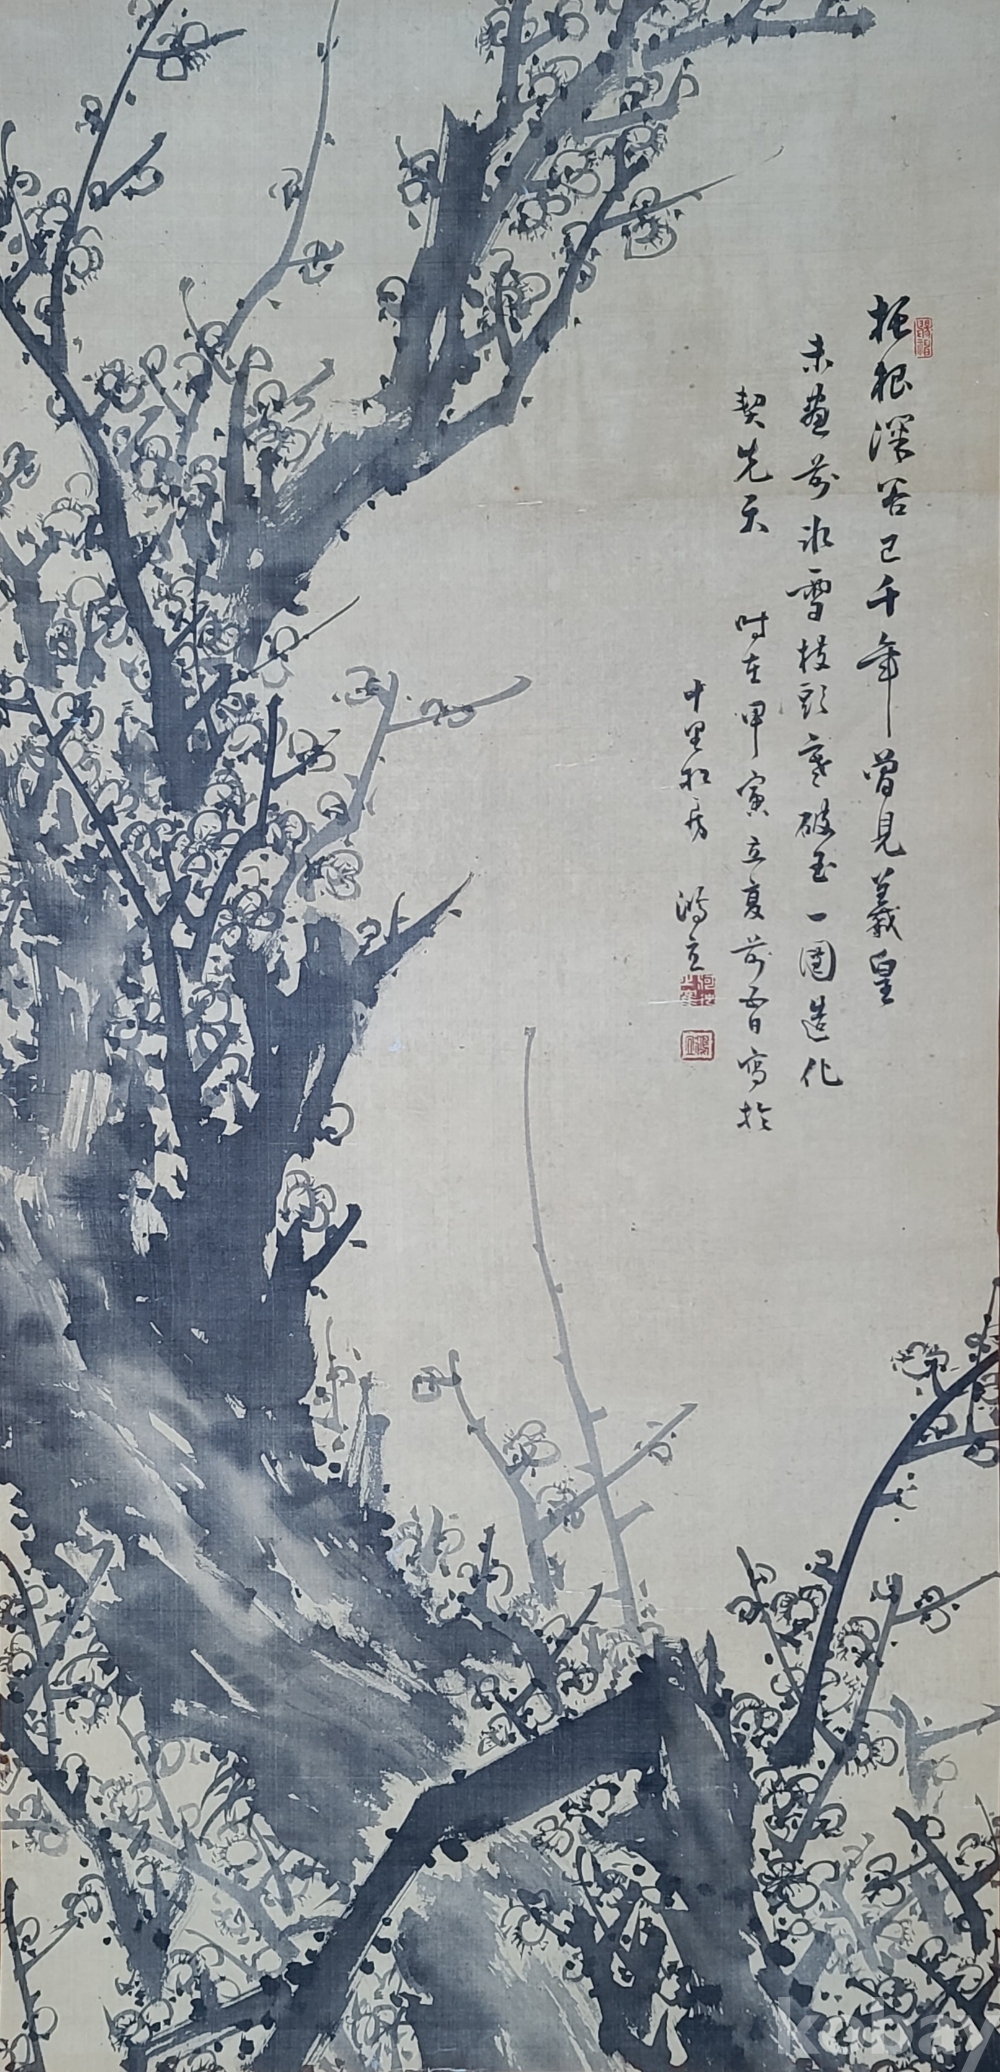 托根深谷已千年曾見羲皇
未畫前氷雪枝頭寒破玉一團造化
契先天 時在甲寅立夏前一日寫於
十里松房 鴻立
kobay